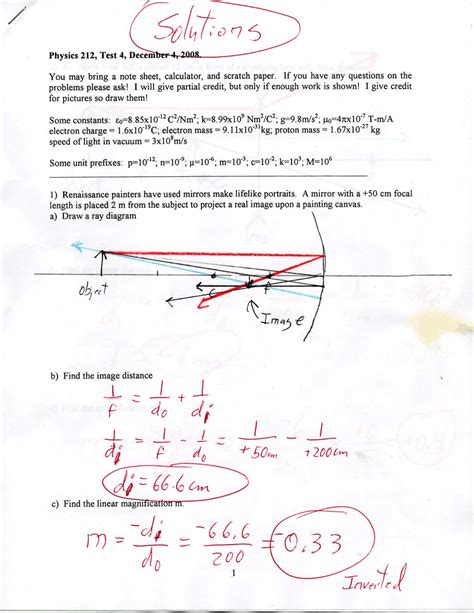 Solutions
Physics 212, Test 4, December 4, 2008.
You may bring a note sheet, calculator, and scratch paper. If you have any questions on the
problems please ask! I will give partial credit, but only if enough work is shown! I give credit
for pictures so draw them!
Some constants: ε₀=8.85x10⁻¹² C²/Nm²; k=8.99x10⁹ Nm²/C²; g=9.8m/s²; μ₀=4πx10⁻⁷ T-m/A
electron charge = 1.6x10⁻¹⁹C; electron mass = 9.11x10⁻³¹kg; proton mass = 1.67x10⁻²⁷ kg
speed of light in vacuum = 3x10⁸m/s
Some unit prefixes: p=10⁻¹²; n=10⁻⁹; μ=10⁻⁶; m=10⁻³; c=10⁻²; k=10³; M=10⁶
1) Renaissance painters have used mirrors make lifelike portraits. A mirror with a +50 cm focal
length is placed 2 m from the subject to project a real image upon a painting canvas.
a) Draw a ray diagram
Object
C
f
Image
b) Find the image distance
1/f = 1/do + 1/di
1/di = 1/f - 1/do = 1/+50cm - 1/+200cm
di = 66.6cm
c) Find the linear magnification m.
m = -di/do = -66.6/200 = -0.33
1
Inverted